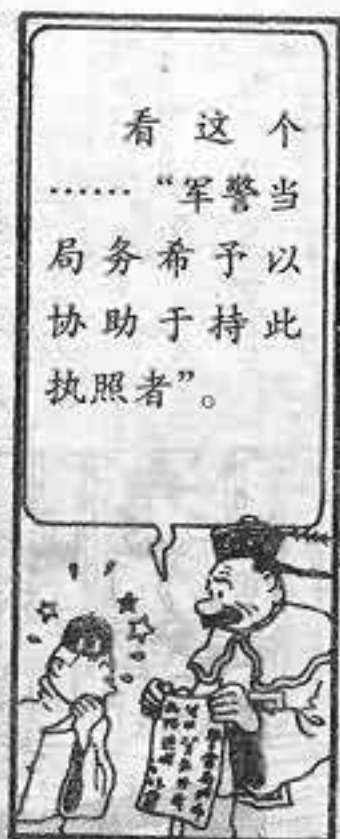 看这个
……“军警当
局务希予以
协助于持此
执照者”。